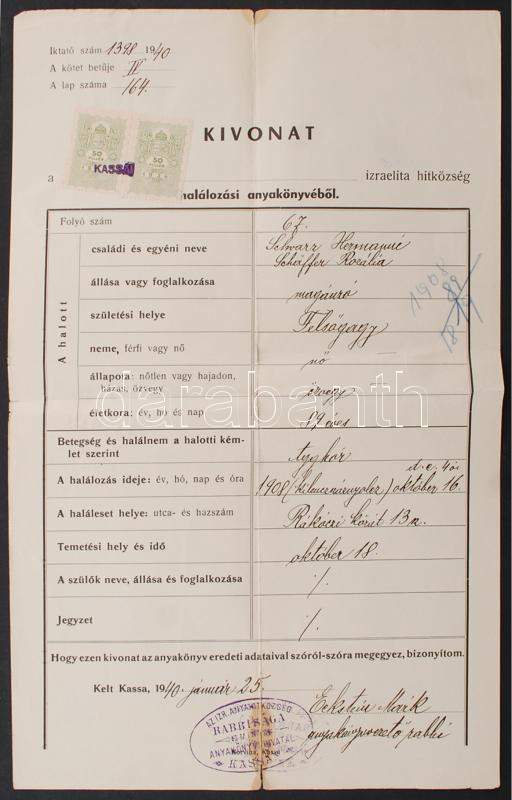 Iktató szám 1398 1940
A kötet betűje IV
A lap száma 164.
50 FILLÉR 50 FILLÉR
KASSA
KIVONAT
a izraelita hitközség
halálozási anyakönyvéből.
Folyó szám 67.
A halott
családi és egyéni neve Schwarz Hermanné
Schäffer Rozália
állása vagy foglalkozása magánzó
születési helye Felsőgagy
neme, férfi vagy nő nő
állapota: nőtlen vagy hajadon, házas, özvegy özvegy
életkora: év, hó és nap 89 éves
1908
89
Betegség és halálnem a halotti kémlet szerint aggkór
A halálozás ideje: év, hó, nap és óra 1908 (kilencszáznyolc) október 16. d. e. 4 ó.
A haláleset helye: utca- és házszám Rákóczi körút 13a.
Temetési hely és idő október 18.
A szülők neve, állása és foglalkozása /.
Jegyzet /.
Hogy ezen kivonat az anyakönyv eredeti adataival szóról-szóra megegyez, bizonyítom.
Kelt Kassa, 1940. január 25.
Eckstein Márk
anyakönyvvezető rabbi
RABBISÁGA
ANYAKÖNYVI HIVATAL
KASSA
darabanth